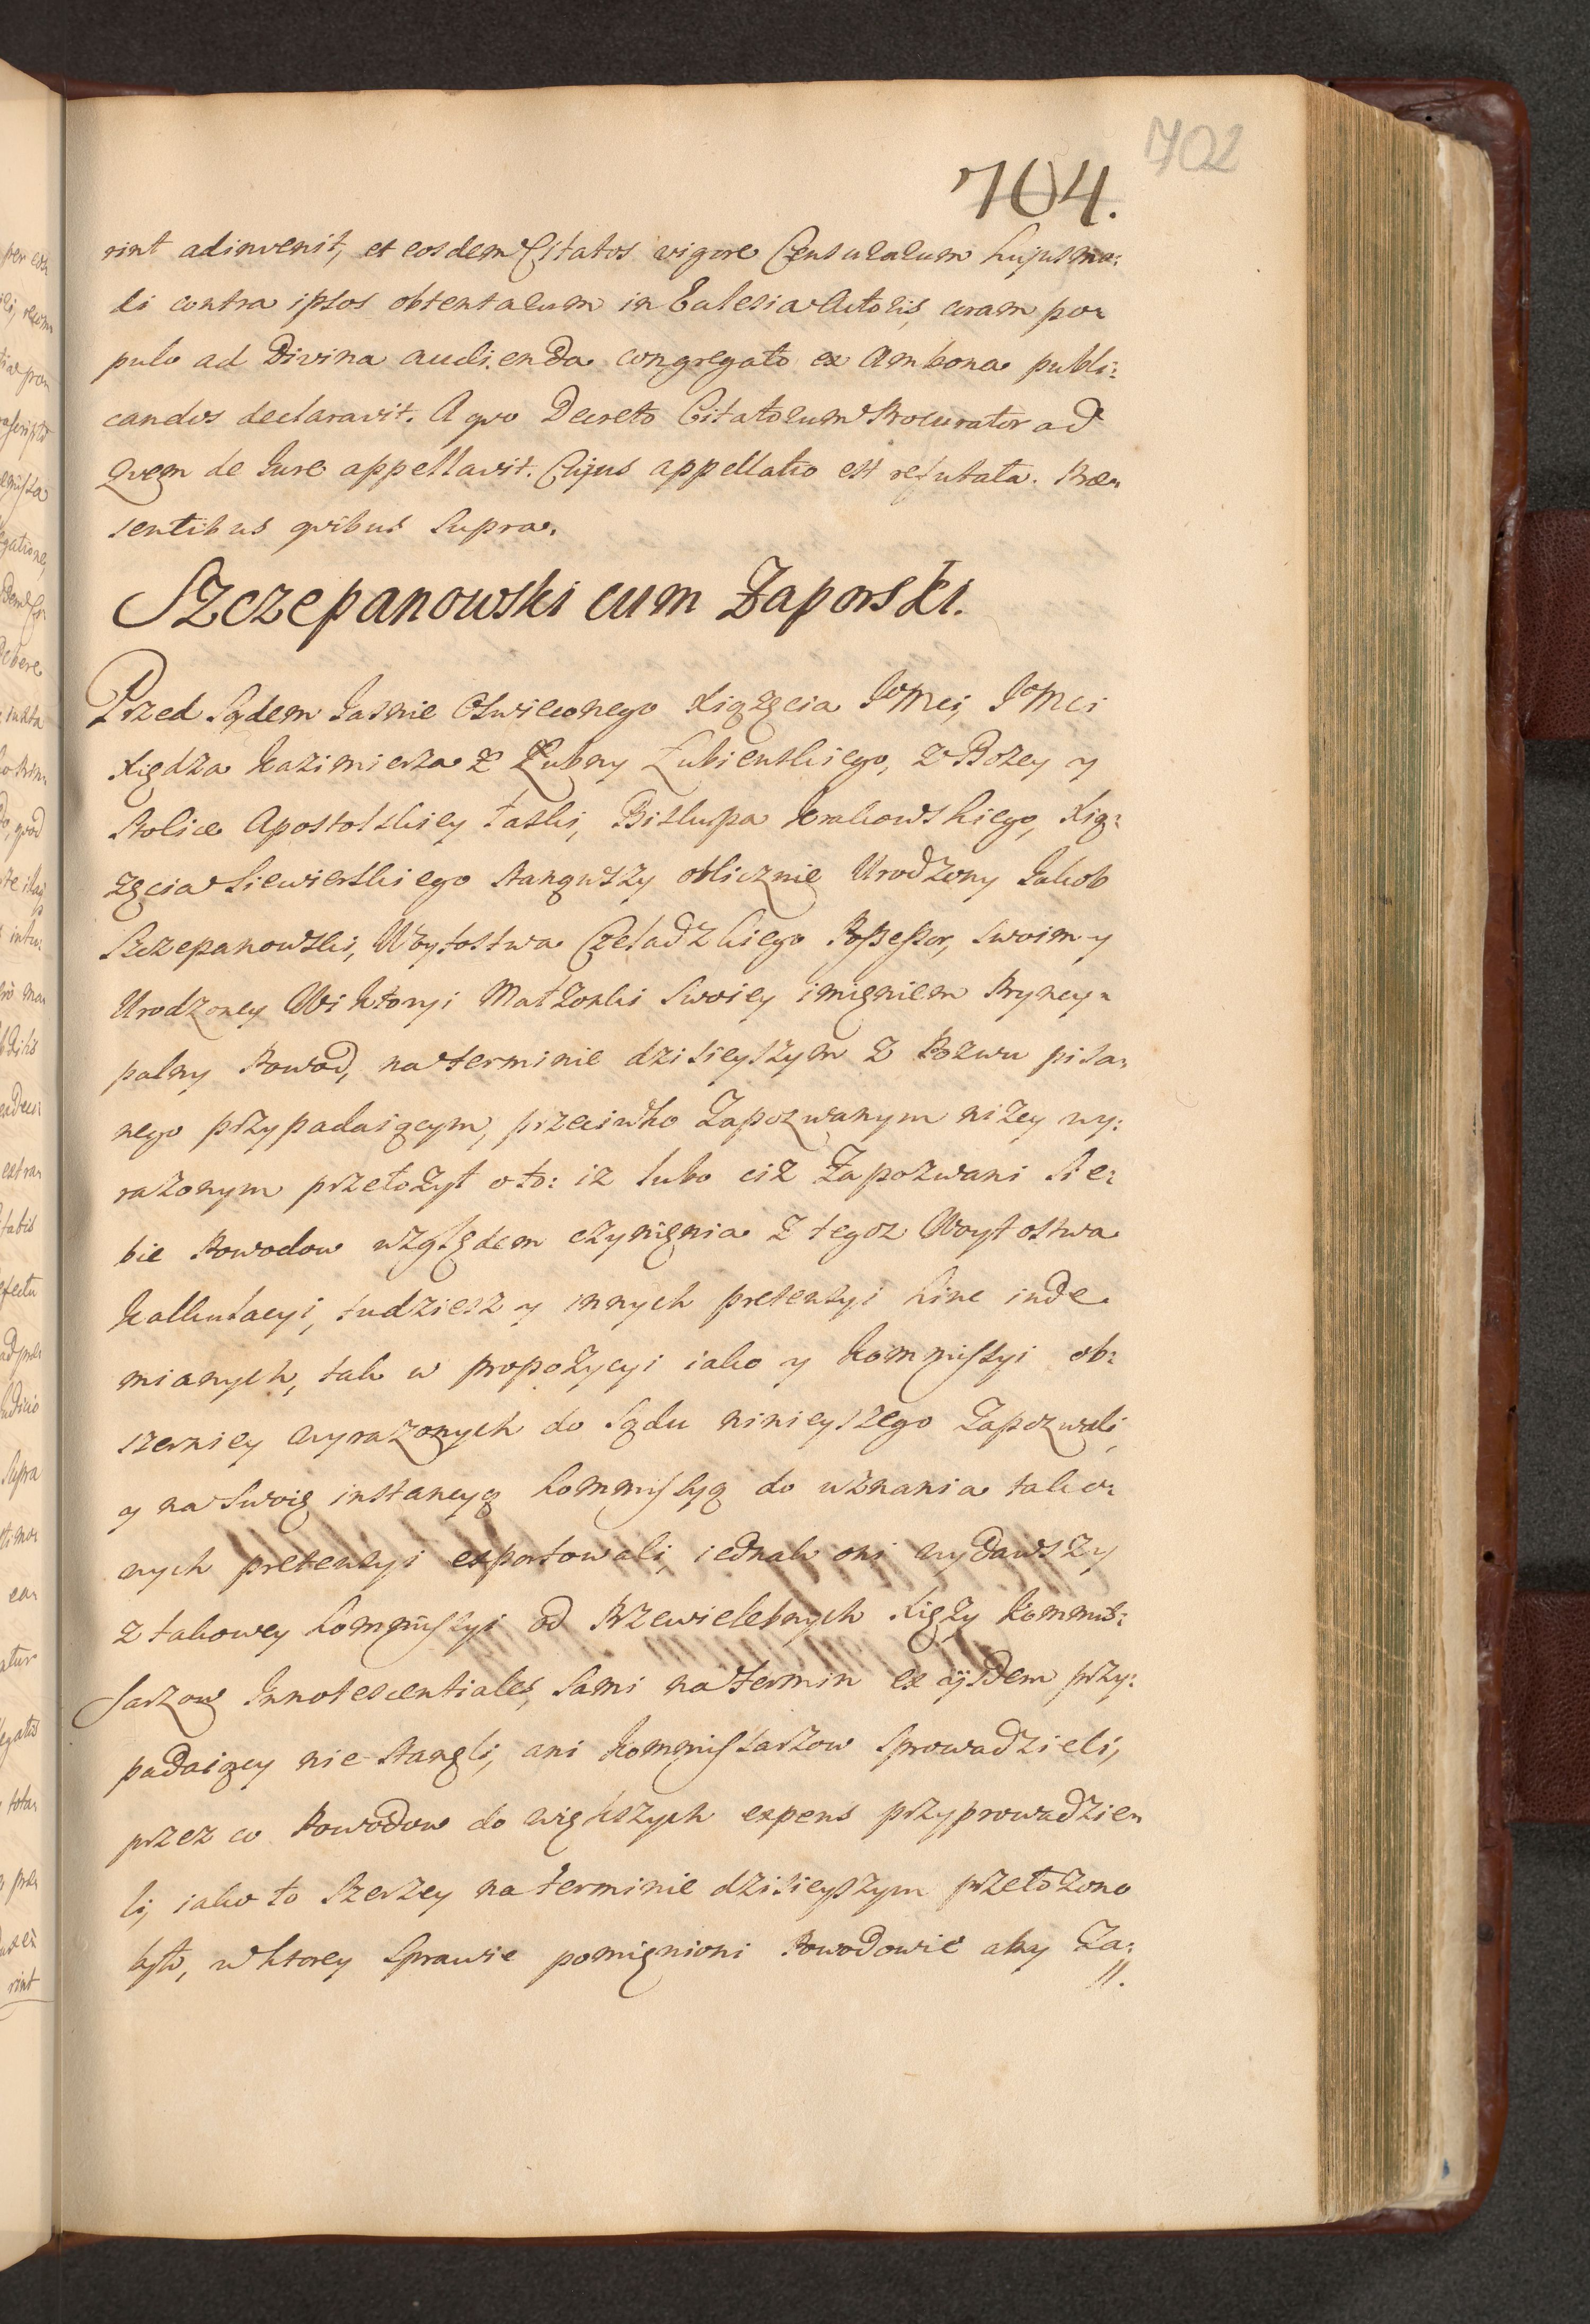 702
704.
rint adinvenit, et eosdem Citatos vigore Censurarum hujusmo:
di contra ipsos obtentarum in Ecclesia Actoris, coram po=
pulo ad Divina audienda congregato ex Ambona publi:
candos declaravit. A quo Decreto Citatorum Procurator ad
Quem de Jure appellavit. Cujus appellatio est refutata. Præ=
sentibus quibus supra.
Szczepanowski cum Zaporski.
Przed Sądem Jasnie Oswieconego Xiążęcia JoMci, JoMci
Xiędza Kazimierza Z Łubny Łubienskiego, Z Bozey y
Stolice Apostolskiey łaski, Biskupa Krakowskiego, Xią:
zęcia Siewierskiego stanąwszy oblicznie Urodzony Jakob
Szczepanowski, Woytostwa Czeladzkiego Possessor, swoim y
Urodzoney Wiktoryi Małzonki swoiey imięniem Pryncy=
palny Powod, na terminie dzisieyszym z Pozwu pisa=
nego przypadaiącym, przeciwko Zapozwanym nizey wy:
razonym przełozył oto: iz lubo ciz Zapozwani sie:
bie Powodow względem czynięnia z tegoz Woytostwa
Kalkulacyi, tudziesz y innych pretensyi hinc inde
mianych, tak w propozycyi iako y Kommissyi ob:
szerniey wyrazonych do Sądu ninieyszego Zapozwali,
y na swoię instancyą Kommissyą do uznania tako:
wych pretensyi exportowali, iednak oni wydawszy
z takowey Kommissyi od Przewielebnych Xięzy Kommis:
sarzow Innotescentiales, sami na termin ex ijsdem przy:
padaiący nie stanęli, ani Kommissarzow sprowadzieli,
przez co Powodow do większych expens przyprowadzie=
li, iako to szerzey na terminie dzisieyszym przełozono
było, w ktorey sprawie pomięnioni Powodowie aby Za:
//.